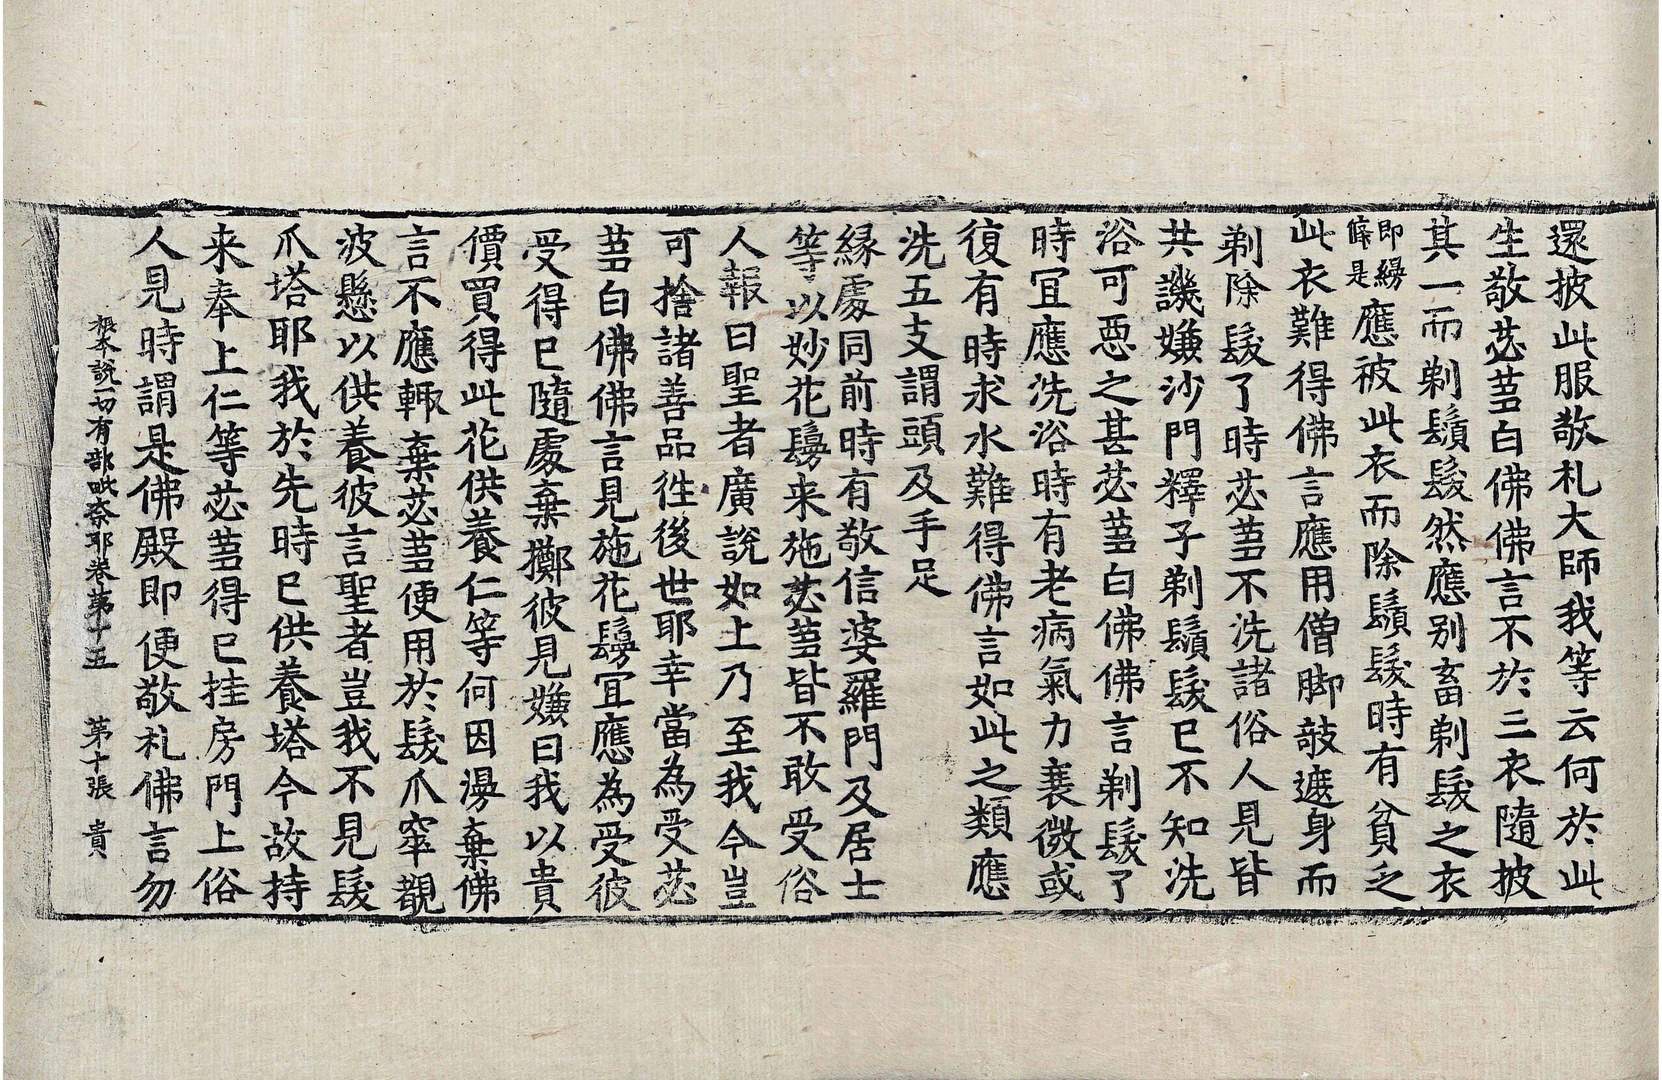 還披此服敬礼大師我等云何於此
生敬苾蒭白佛佛言不於三衣隨披
其一而剃鬚髮然應别畜剃髮之衣
即縵
絛是
應被此衣而除鬚髮時有貧乏
此衣難得佛言應用僧脚敧遮身而
剃除髮了時苾蒭不洗諸俗人見皆
共譏嫌沙門釋子剃鬚髮已不知洗
浴可惡之甚苾蒭白佛佛言剃髮了
時冝應洗浴時有老病氣力衰微或
復有時求水難得佛言如此之類應
洗五支謂頭及手足
緣處同前時有敬信婆羅門及居士
等以妙花鬘来施苾蒭皆不敢受俗
人報曰聖者廣說如上乃至我今豈
可捨諸善品徃後世耶幸當為受苾
蒭白佛佛言見施花鬘冝應為受彼
受得已隨處棄擲彼見嫌曰我以貴
價買得此花供養仁等何因漫棄佛
言不應輙棄苾蒭便用於髮爪窣覩
波懸以供養彼言聖者豈我不見髮
爪塔耶我於先時已供養塔今故持
来奉上仁等苾蒭得已挂房門上俗
人見時謂是佛殿即便敬礼佛言勿
根本說一切有部毗奈耶卷第十五 第十張 貴